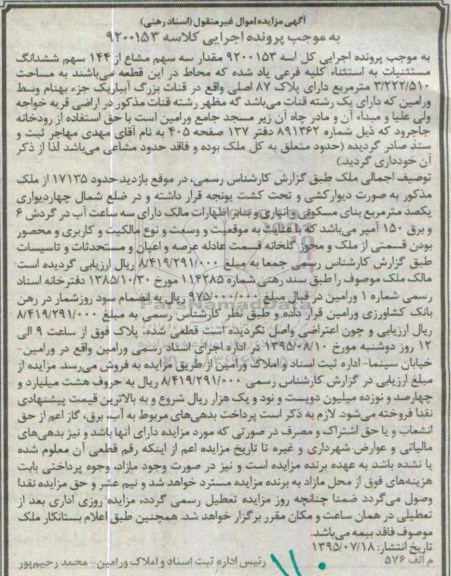 آگهی مزایده اموال غیرمنقول (اسناد رهنی)
به موجب پرونده اجرایی کلاسه ۹۲۰۰۱۵۳
به موجب پرونده اجرایی کل اسه ۹۲۰۰۱۵۳ مقدار سه سهم مشاع از ۱۴۴ سهم ششدانگ
مستثنیات به استثناء کلیه فرعی یاد شده که محاط در این قطعه می‌باشند به مساحت
۳/۲۲۲/۵۱۰ مترمربع دارای پلاک ۸۷ اصلی واقع در قنات بزرگ آبباریک جزء بهنام وسط
ورامین که دارای یک رشته قنات می‌باشد که مظهر رشته قنات مذکور در اراضی قریه خواجه
ولی علیا و مبداء آن و مادر چاه آن زیر مسجد جامع ورامین است با حق استفاده از رودخانه
جاجرود که ذیل شماره ۸۹۱۳۶۲ دفتر ۱۳۷ صفحه ۴۰۵ به نام آقای مهدی مهاجر ثبت و
سند صادر گردیده (حدود متعلق به کل ملک بوده و فاقد حدود مشاعی می‌باشد لذا از ذکر
آن خودداری گردید.)
توصیف اجمالی ملک طبق گزارش کارشناس رسمی، در موقع بازدید حدود ۱۷۱۳۵ از ملک
مذکور به صورت دیوارکشی و تحت کشت یونجه قرار داشته و در ضلع شمال چهاردیواری
یکصد مترمربع بنای مسکونی و انباری و بنابر اظهارات مالک دارای سه ساعت آب در گردش ۶
و برق ۱۵۰ آمپر می‌باشد که با عنایت به موقعیت و وسعت و نوع مالکیت و کاربری و محصور
بودن قسمتی از ملک و مجوز گلخانه قسمت عادله عرصه و اعیان و مستحدثات و تاسیسات
طبق گزارش کارشناس رسمی جمعا به مبلغ ۸/۴۱۹/۲۹۱/۰۰۰ ریال ارزیابی گردیده است
مالک ملک موصوف را طبق سند رهنی شماره ۱۱۴۳۸۵ مورخ ۱۳۸۵/۱۰/۳۰ دفترخانه اسناد
رسمی شماره ۱ ورامین در قبال مبلغ ۹۷۵/۰۰۰/۰۰۰ ریال به انضمام سود روزشمار در رهن
بانک کشاورزی ورامین قرار داده و طبق نظر کارشناس رسمی به مبلغ ۸/۴۱۹/۲۹۱/۰۰۰
ریال ارزیابی و چون اعتراضی واصل نگردیده است قطعی شده، پلاک فوق از ساعت ۹ الی
۱۲ روز دوشنبه مورخ ۱۳۹۵/۰۸/۱۰ در اداره اجرای اسناد رسمی ورامین واقع در ورامین-
خیابان سینما- اداره ثبت اسناد و املاک ورامین از طریق مزایده به فروش می‌رسد. مزایده از
مبلغ ارزیابی در گزارش کارشناس رسمی ۸/۴۱۹/۲۹۱/۰۰۰ ریال به حروف هشت میلیارد و
چهارصد و نوزده میلیون دویست و نود و یک هزار ریال شروع و به بالاترین قیمت پیشنهادی
نقدا فروخته می‌شود. لازم به ذکر است پرداخت بدهی‌های مربوط به آب، برق، گاز اعم از حق
انشعاب و یا حق اشتراک و مصرف در صورتی که مورد مزایده دارای آنها باشد و نیز بدهی‌های
مالیاتی و عوارض شهرداری و غیره تا تاریخ مزایده اعم از اینکه رقم قطعی آن معلوم شده
یا نشده باشد به عهده برنده مزایده است و نیز در صورت وجود مازاد، وجوه پرداختی بابت
هزینه‌های فوق از محل مازاد به برنده مزایده مسترد خواهد شد و نیم عشر و حق مزایده نقدا
وصول می‌گردد ضمنا چنانچه روز مزایده تعطیل رسمی گردد، مزایده روزی اداری بعد از
تعطیلی در همان ساعت و مکان مقرر برگزار خواهد شد. همچنین طبق اعلام بستانکار ملک
موصوف فاقد بیمه می‌باشد.
تاریخ انتشار: ۱۳۹۵/۰۷/۱۸
م الف ۵۷۶ رئیس اداره ثبت اسناد و املاک ورامین- محمد رحیم‌پور